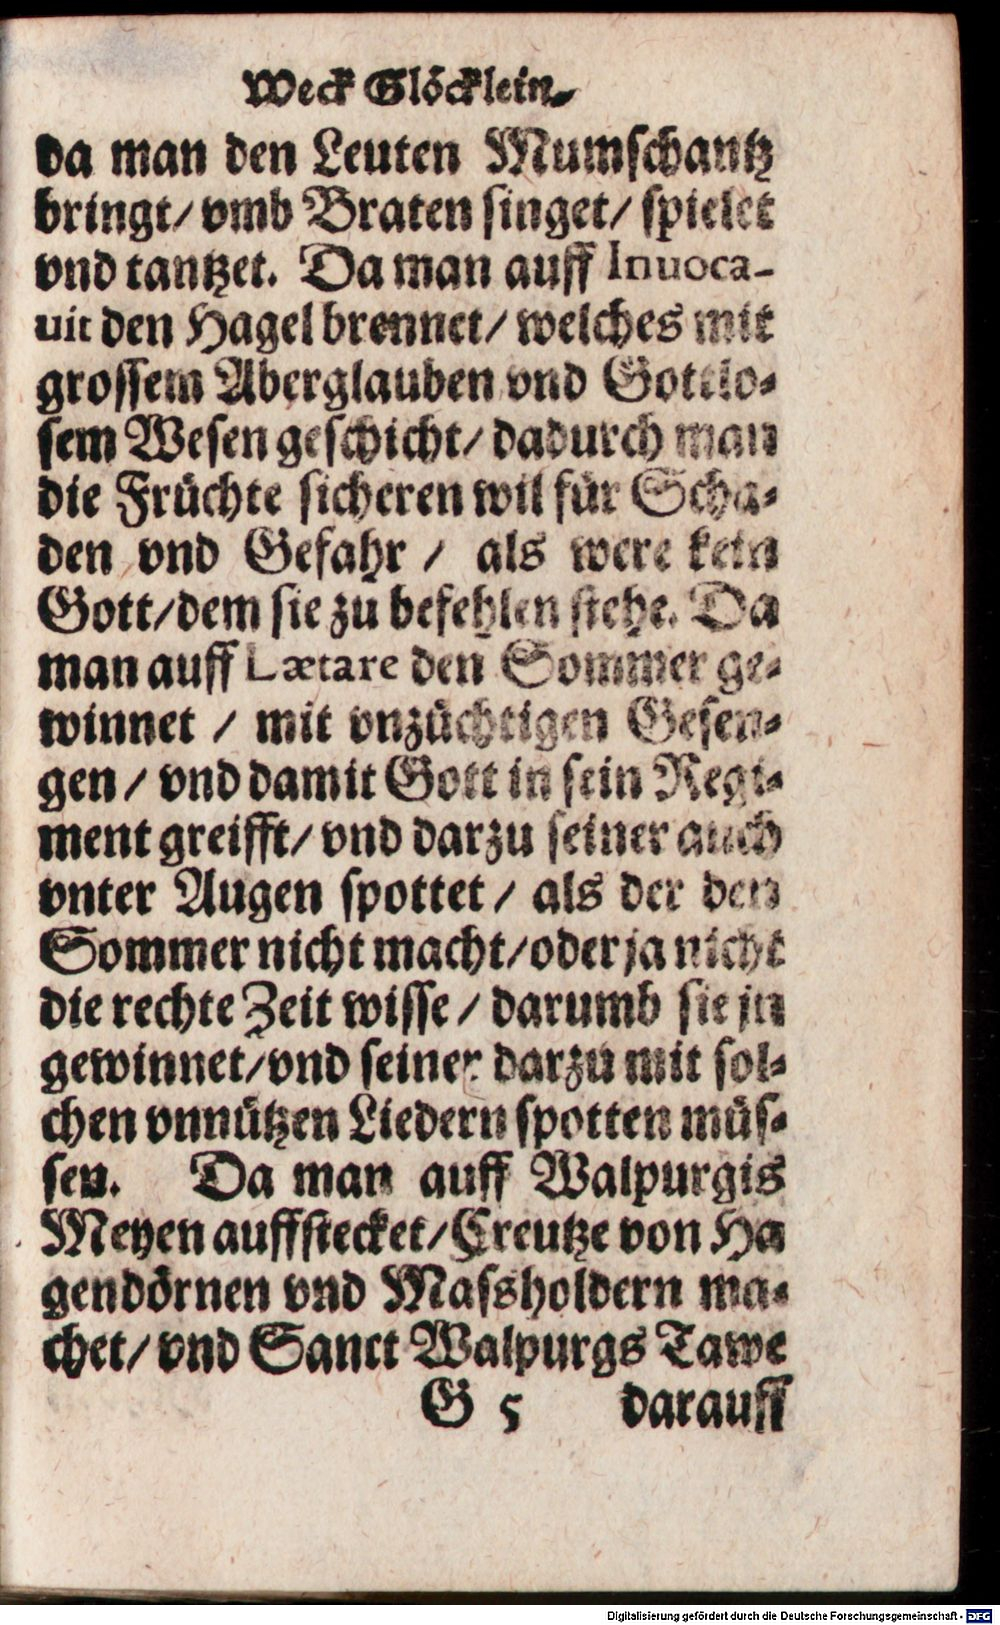 Weck Glöcklein.
da man den Leuten Mumschantz
bringt/ vmb Braten singet/ spielet
vnd tantzet. Da man auff Inuoca-
uit den Hagel brennet/ welches mit
grossem Aberglauben vnd Gottlo-
sem Wesen geschicht/ dadurch man
die Früchte sicheren wil für Scha-
den vnd Gefahr / als were kein
Gott/dem sie zu befehlen stehe. Da
man auff Lætare den Sommer ge-
winnet / mit vnzüchtigen Gesen-
gen / vnd damit Gott in sein Regi-
ment greifft/ vnd darzu seiner auch
vnter Augen spottet / als der den
Sommer nicht macht/oder ja nicht
die rechte Zeit wisse / darumb sie jn
gewinnet/vnd seiner darzu mit sol-
chen vnnützen Liedern spotten müs-
sen. Da man auff Walpurgis
Meyen auffstecket/Creutze von Ha
gendörnen vnd Massholdern ma-
chet/ vnd Sanct Walpurgs Tawe
G 5 darauff
Digitalisierung gefördert durch die Deutsche Forschungsgemeinschaft - DFG